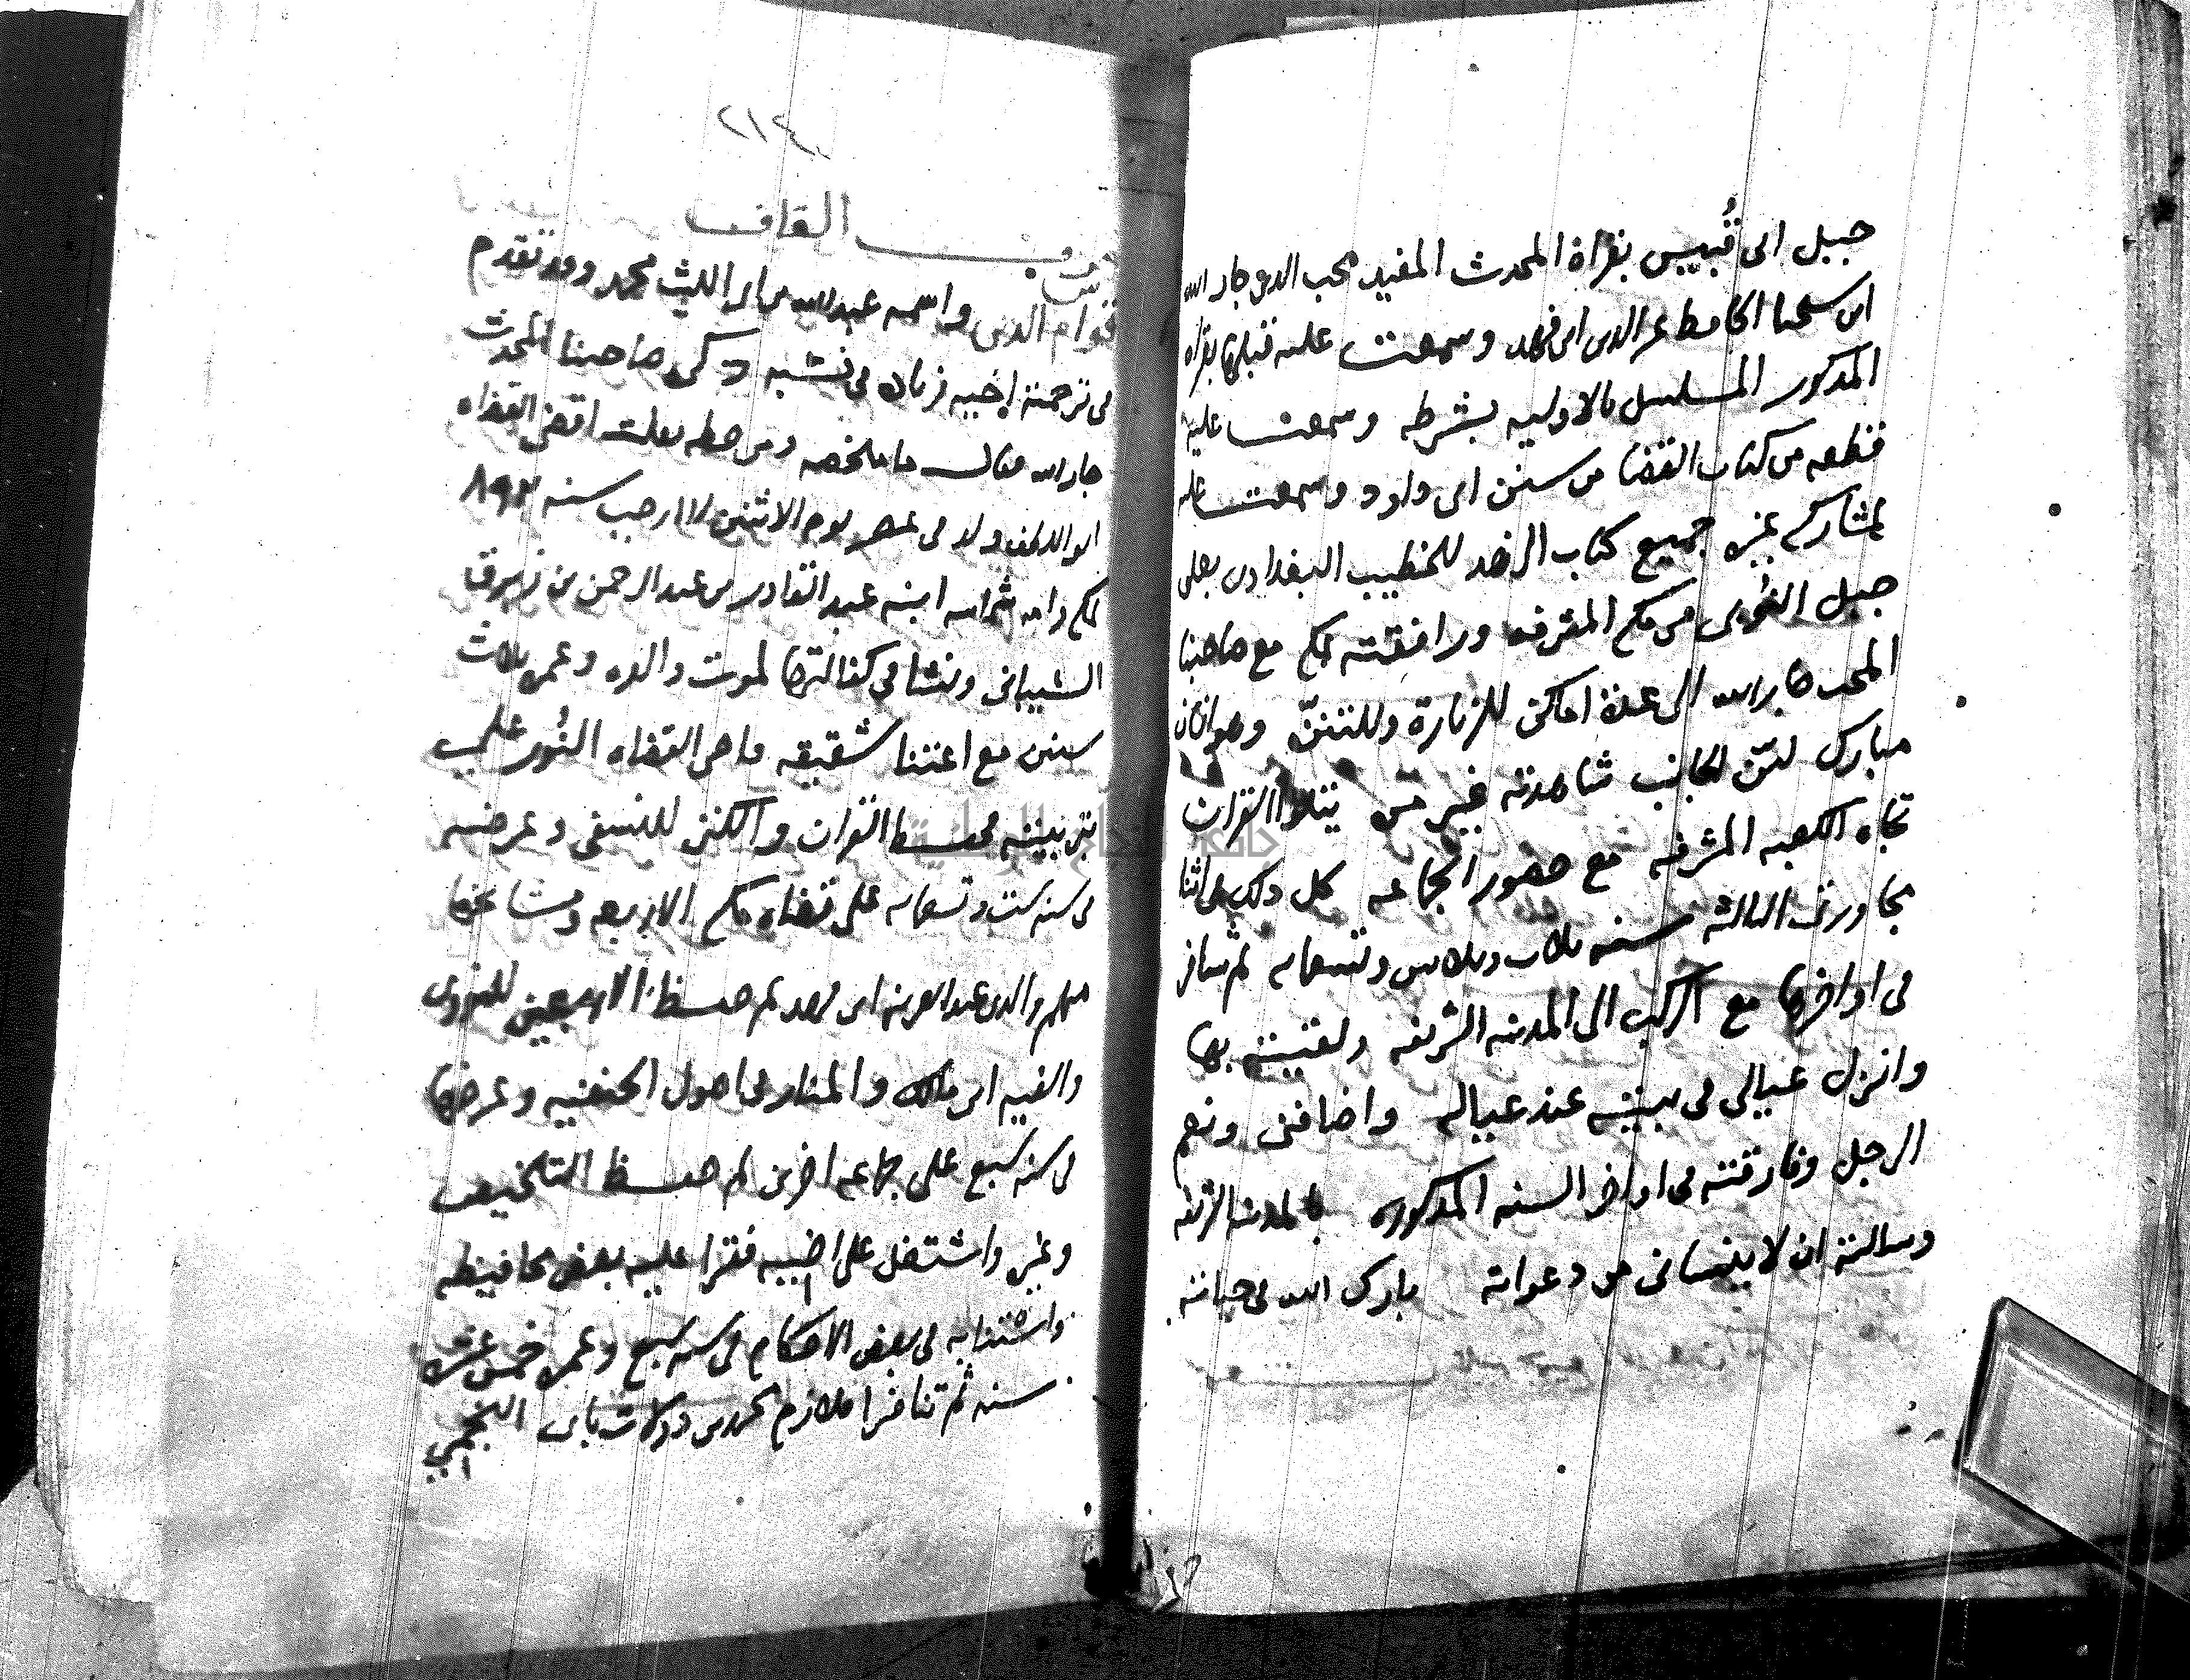 جبل ابى قُبيس بقراة المحدث المفيد محب الدين جار الله
ابن شيخنا الحافظ عز الدين ابن فهد وسمعت عليه قبلها بقراة
المذكور المسلسل بالاوليه بشرطه وسمعت عليه
قطعه من كتاب القضا من سنن ابى داود وسمعت عليه
بمشاركة غيره جميع كتاب الزهد للخطيب البغدادى بعلى
جبل الثورى من مكه المشرفه ورافقته بمكه مع صاحبنا
المحب جار الله الى عدة اماكن للزيارة وللتنزّه وهو انسان
مبارك ليّن الجانب شاهدته غير مره يتلوا القران
تجاه الكعبه المشرفه مع حضور الجماعه كل ذلك فى اثنا
مجاورتى الثالثه سنه ثلاث وثلاثين وتسعمايه ثم سافر
فى اواخرها مع الركب الى المدينه الشريفه ولقيته بها
وانزل عيالى فى بيته عند عياله واضافنى ونعم
الرجل وفارقته فى اواخر السنه المذكوره بالمدينه الشريفه
وسالته ان لا ينسانى من دعواته بارك الله فى حياته
٢١٤
حرف القاف
قوام الدين واسمه عبدالله بن ابى الليث محمد وقد تقدم
فى ترجمة اخيه زيادة فى نسبه ذكره صاحبنا المحدث
جار الله فقال ما ملخصه ومن خطه نقلت اقضى القضاه
ولد فى عصر يوم الاثنين ١١ رجب سنه ٨٩٣
بمكه وامه ابنه عبد القادر بن عبد الرحمن بن زبرق
الشيبانى ونشا فى كفالتها لموت والده وعمره ثلاث
سنين مع اعتنا شقيقه قاضى القضاه النُورى على
بتربيته فحفظ القران والكنز للنسفى وعرضه
فى سنه ست وتسعمايه على قضاه مكه الاربعه ومشايخها
منهم والدى عبد العزيز ابن فهد ثم حفظ الاربعين للنووى
والفيه ابن مالك والمنار فى اصول الحنفيه وعرضها
فى سنه سبع على جماعه اخرين ثم حفظ التلخيص
وغيره واشتغل على اخيه فقرا عليه بعض محافيظه
واستنابه فى بعض الاحكام فى سنه سبع وعمره خمس عشره
سنه ثم تنافرا فلازم